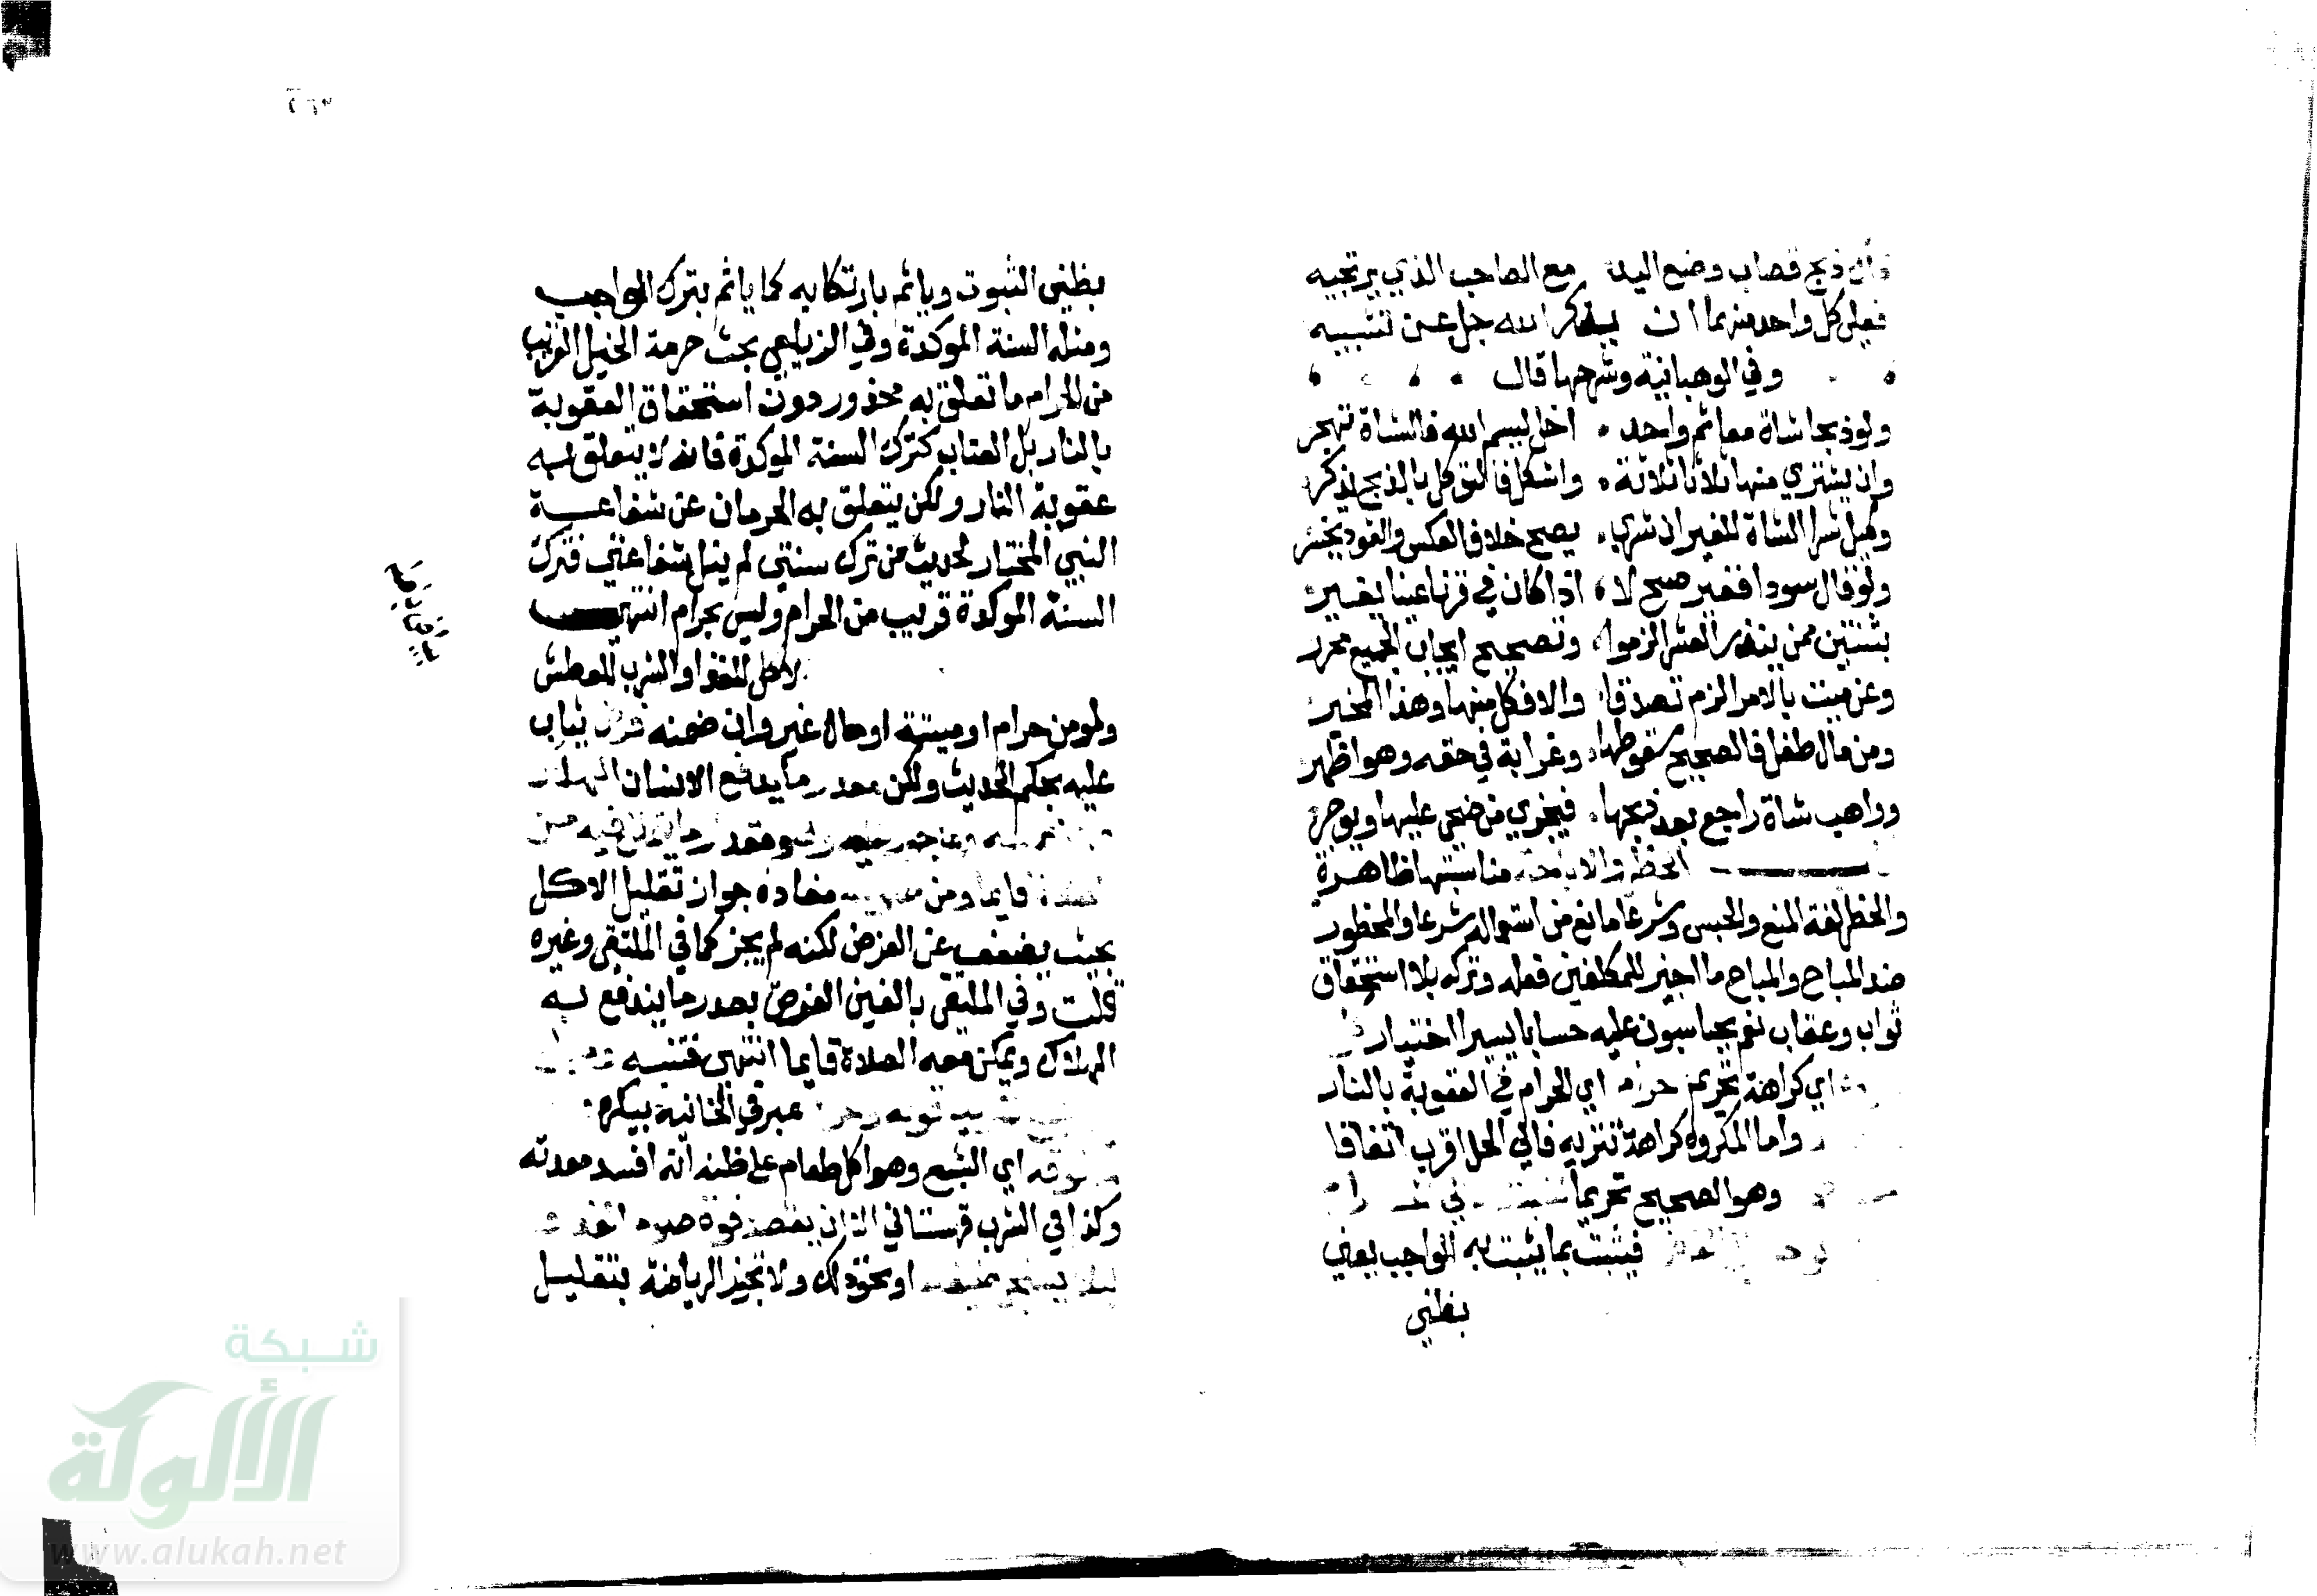 ذبح قصاب وضع اليد مع الصاحب الذي يرتجيه
فعلى كل واحد منهما ان يذكر الله جل عن تشبيه
وفي الوهبانية وشرحها قال
ولو ذبحا شاة معا ثم واحد اخل ببسم الله فالشاة تهجر
وان يشتري منها ثلاثا ثلاثة واشكل فالتوكيل بالذبح يذكر
وكيل شرا الشاة للغير ان شرى يصح خلاف العكس والقود يخسر
ولو قال سودا فغير صح لا اذا كان في قرناء عينا يغير
بثنتين ممن ينذر العشر الزموا وتصحيح ايجاب الجميع محرر
وعن ميت بالامر الزم تصدقا والا فكل منها وهذا المخير
ومن مال طفل فالصحيح سقوطها وغرابة في حقه وهو اظهر
وواهب شاة راجع بعد ذبحها فيجزي من ضحى عليها ويوجر
الحظر والاباحة مناسبتها ظاهرة
والحظر لغة المنع والحبس وشرعا ما منع من استعماله شرعا والمحظور
ضد المباح والمباح ما اجيز للمكلفين فعله وتركه بلا استحقاق
ثواب وعقاب نعم يحاسبون عليه حسابا يسيرا اختيار
اي كراهة تحريم حرام اي كالحرام في العقوبة بالنار
واما المكروه كراهة تنزيه فالى الحل اقرب اتفاقا
وهو الصحيح تحريما
فيثبت بما يثبت به الواجب يعني
بظني
بظني الثبوت وياثم بارتكابه كما ياثم بترك الواجب
ومثله السنة الموكدة وفي الزيلعي بحث حرمة الخيل القريب
من الحرام ما تعلق به محذور دون استحقاق العقوبة
بالنار بل العتاب كترك السنة الموكدة فانه لا يتعلق به
عقوبة النار ولكن يتعلق به الحرمان عن شفاعة
النبي المختار لحديث من ترك سنتي لم ينل شفاعتي فترك
السنة الموكدة قريب من الحرام وليس بحرام انتهى
الاكل للغذا والشرب للعطش
ولو من حرام او ميتة او مال غيره وان ضمنه فرض يثاب
عليه بحكم الحديث ولكن مقدار ما يدفع الانسان الهلاك
وماجور عليه وهو مقدار ما فيه من
قايما ومن مفاده جواز تقليل الاكل
بحيث يضعف عن الفرض لكنه لم يجز كما في الملتقى وغيره
قلت وفي المبتغى بالغين الفرض بقدر ما يندفع به
الهلاك ويمكن معه الصلاة قايما انتهى فتنبه
عبر في الخانية بيكره
فوقه اي الشبع وهو اكل طعام غلب على ظنه انه افسد معدته
وكذا في الشرب قهستاني الا ان يقصد قوة صوم الغد
او نحو ذلك ولا تجوز الرياضة بتقليل
شبكة
الألوكة
www.alukah.net